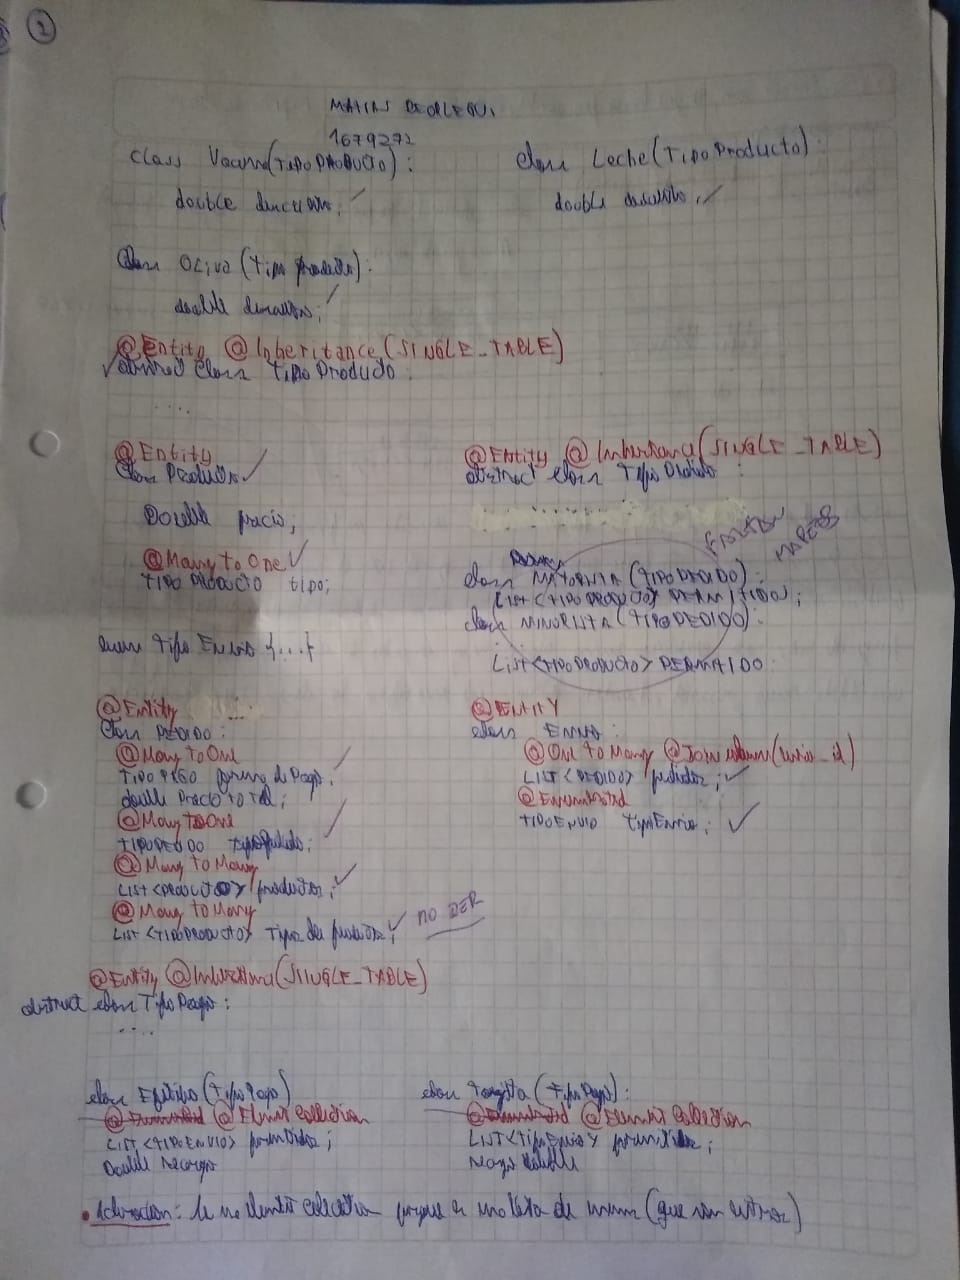 2
MATIAS
1679272
class Vacuna(TIPO PRODUCTO):
double
class Leche(Tipo Producto)
double
class Oliva (Tipo producto):
double
@Entity @Inheritance(SINGLE_TABLE)
abstract class Tipo Producto
....
@Entity
class Producto
Double precio;
@Many to One
TIPO PRODUCTO tipo;
enum Tipo Envio {...}
@Entity @Inheritance(SINGLE_TABLE)
abstract class Tipo Pedido :
FALTABAN
MAPEOS
class MAYORISTA (TIPO PEDIDO):
LIST<TIPO PRODUCTO> PERMITIDO;
class MINORISTA (TIPO PEDIDO):
LIST<TIPO PRODUCTO> PERMITIDO
@Entity
class PEDIDO:
@Many to One
TIPO PAGO forma de Pago;
double Precio total;
@Many to One
TIPO PEDIDO tipo pedido;
@Many to Many
LIST <PRODUCTO> productos;
@Many to Many
LIST <TIPO PRODUCTO> Tipo de producto;
NO DER
@ENTITY
class Envio:
@One to Many @Join column(envio_id)
LIST <PEDIDO> pedidos;
@Enumerated
TIPO ENVIO tipo Envio;
@Entity @Inheritance(SINGLE_TABLE)
abstract class Tipo Pago:
....
class Efectivo (Tipo Pago)
@Enumerated @Element Collection
LIST <TIPO ENVIO> permitidos;
Double recargo
class Tarjeta (Tipo Pago):
@Enumerated @Element Collection
LIST <Tipo Envio> permitidos;
recargo double
• Aclaracion: Se usa element collection porque es una lista de enum (que son